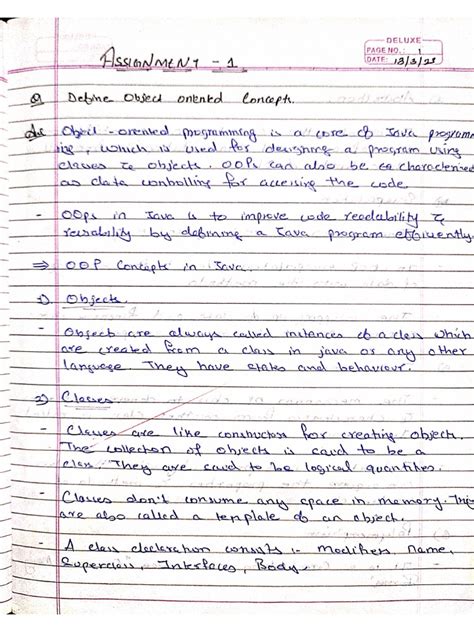 DELUXE
PAGE NO.: 1
DATE: 13/3/23
ASSIGNMENT - 1
Q Define Object oriented Concepts.
Ans Object-oriented programming is a core of Java programm
ing, which is used for designing a program using
classes & objects. OOPs can also be characterised
as data controlling for accessing the code
- OOPs in Java is to improve code readability &
reusability by defining a Java program efficiently.
⇒ OOP Concepts in Java.
1) Objects.
- Objects are always called instances of a class which
are created from a class in java or any other
language. They have states and behaviour.
2) Classes
- Classes are like constructors for creating objects.
The collection of objects is said to be a
class. They are said to be logical quantities.
- Classes don't consume any space in memory.
are also called a template of an object.
- A class declaration consists :- Modifiers, name,
Superclass, Interfaces, Body.